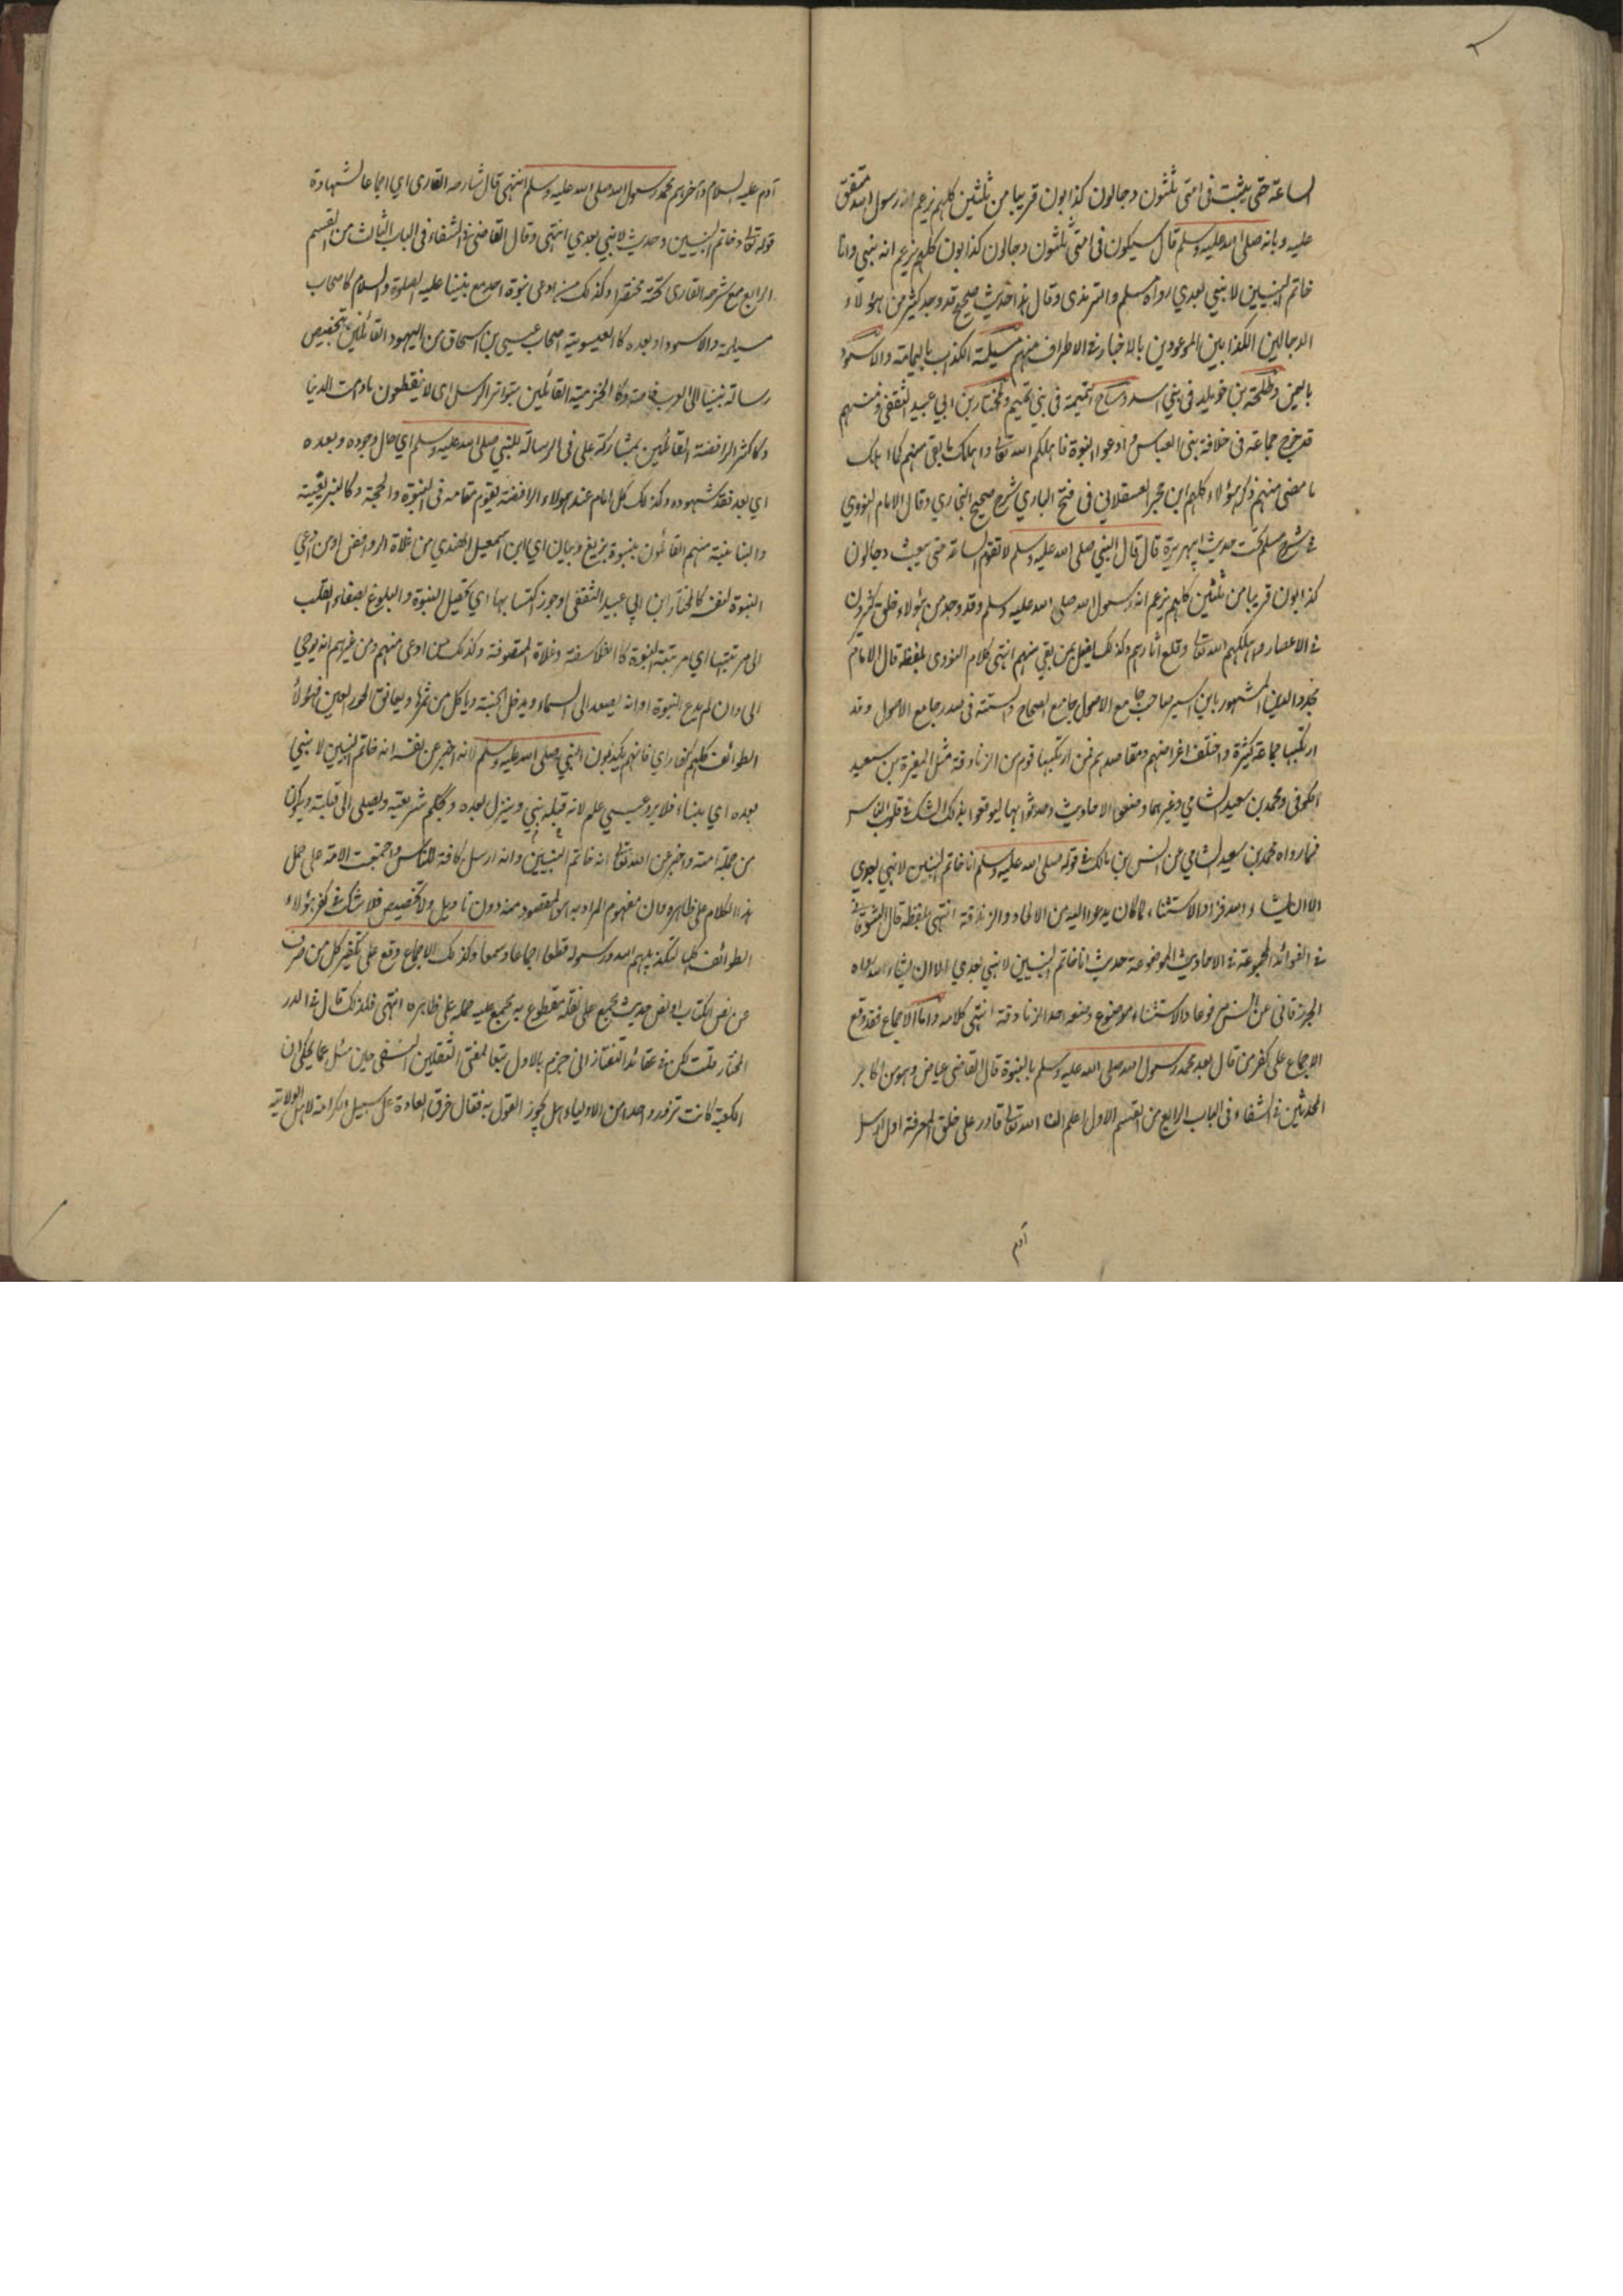 الساعة حتى يبعث فى امتى ثلثون دجالون كذابون قريبا من ثلثين كلهم يزعم انه رسول الله متفق
عليه وبانه صلى الله عليه وسلم قال سيكون فى امتى ثلثون دجالون كذابون كلهم يزعم انه نبي وانا
خاتم النبيين لا نبي بعدي رواه مسلم والترمذى وقال هذا حديث صحيح قد وجد كثير من هؤلاء
الدجالين الكذابين الموعودين بالاخبار فى الاطراف منهم مسيلمة الكذاب باليمامة والاسود
باليمن وطلحة بن خويلد فى بني اسد وسجاح التميمة فى بني تميم والمختار بن ابي عبيد الثقفى ومنهم
قد خرج جماعة فى خلافة بنى العباس وادعوا النبوة فاهلكهم الله تعالى واهلك ما بقى منهم كما اهلك
ما مضى منهم ذكر هؤلاء كلهم ابن حجر العسقلاني فى فتح الباري شرح صحيح البخاري وقال الامام النووي
فى شرح مسلم تحت حديث ابي هريرة قال قال النبي صلى الله عليه وسلم لا تقوم الساعة حتى يبعث دجالون
كذابون قريبا من ثلثين كلهم يزعم انه رسول الله صلى الله عليه وسلم وقد وجد من هؤلاء خلق كثيرون
فى الاعصار واهلكهم الله تعالى وقلع آثارهم وكذلك يفعل بمن بقي منهم انتهى كلام النووى بلفظه قال الامام
مجد الدين المشهور بابن الاثير صاحب جامع الاصول جامع الصحاح والستة فى صدر جامع الاصول وقد
ارتكبها جماعة كثيرة واختلف اغراضهم ومقاصدهم فمن ارتكبها قوم من الزنادقة مثل المغيرة بن سعيد
الكوفى ومحمد بن سعيد الشامي وغيرهما وضعوا الاحاديث وحدثوا بها ليوقعوا بذلك الشك فى قلوب الناس
فما رواه محمد بن سعيد الشامي عن انس ابن مالك فى قوله صلى الله عليه وسلم انا خاتم النبيين لا نبي بعدي
الا ان يشاء الله فزاد الاستثناء لما كان يدعوا اليه من الالحاد والزندقة انتهى بلفظه قال الشوكانى
فى الفوائد المجموعة فى الاحاديث الموضوعة حديث انا خاتم النبيين لا نبي بعدي الا ان يشاء الله رواه
الجوزقاني عن انس مرفوعا والاستثناء موضوع وضعه احد الزنادقة انتهى كلامه واما الاجماع فقد وقع
الاجماع على كفر من قال بعد محمد رسول الله صلى الله عليه وسلم بالنبوة قال القاضى عياض وهو من اكابر
المحدثين فى الشفاء فى الباب الرابع من القسم الاول اعلم ان الله تعالى قادر على خلق المعرفة اول الرسل
آدم
آدم عليه السلام وآخرهم محمد رسول الله صلى الله عليه وسلم انتهى قال شارحه القارى اي اجماعا لشهادة
قوله تعالى وخاتم النبيين وحديث لا نبي بعدي انتهى وقال القاضى فى الشفاء فى الباب الثالث من القسم
الرابع مع شرحه القارى تحته مختصرا وكذلك من ادعى نبوة احد مع نبينا عليه الصلوة والسلام كاصحاب
مسيلمة والاسود او بعده كالعيسوية اصحاب عيسى بن اسحاق من اليهود القائلين بتخصيص
رسالة نبينا الى العرب خاصة وكالخرمية القائلين بتواتر الرسل اى لا ينقطعون ما دامت الدنيا
وكاكثر الرافضة القائلين بمشاركة على فى الرسالة للنبي صلى الله عليه وسلم اي حال وجوده وبعده
اي بعد فقد شهوده وكذلك كل امام عند هؤلاء الرافضة يقوم مقامه فى النبوة والحجة وكالبزيغية
والبيانية منهم القائلون بنبوة بزيغ وبيان اي ابن اسمعيل الهندي من غلاة الروافض او من ادعى
النبوة لنفسه كالمختار ابن ابي عبيد الثقفى او جوز اكتسابها اي تحصيل النبوة والبلوغ بصفاء القلب
الى مرتبتها اي مرتبة النبوة كالفلاسفة وغلاة المتصوفة وكذلك من ادعى منهم ومن غيرهم انه يوحى
الى وان لم يدع النبوة او انه يصعد الى السماء ويدخل الجنة وياكل من ثمرها ويعانق الحور العين فهؤلاء
الطوائف كلهم كفار اي فانهم يكذبون النبي صلى الله عليه وسلم لانه اخبر عن نفسه انه خاتم النبيين لا نبي
بعده اي ينباء فلا يرد عيسى علم لانه قبله نبي وينزل بعده ويحكم شريعته ويصلى الى قبلته ويكون
من جملة امته واخبر عن الله تعالى انه خاتم النبيين وانه ارسل كافة للناس واجتمعت الامة على حمل
هذا الكلام على ظاهره وان مفهوم المراد به هو المقصود منه دون تاويل ولا تخصيص فلا شك فى كفر هؤلاء
الطوائف كلها لتكذيبهم الله ورسوله قطعا اجماعا وسمعا وكذلك الاجماع وقع على تكفير كل من صرف
عن نص الكتاب او نص حديث مجمع على نقله مقطوع به مجمع عليه حمله على ظاهره انتهى فلذلك قال فى الدر
المختار قلت لكن فى عقائد التفتازانى جزم بالاول تبعا لمفتى الثقلين النسفى حين سئل عما يحكى ان
الكعبة كانت تزور واحدا من الاولياء هل يجوز القول به فقال خرق العادة على سبيل الكرامة لاهل الولاية